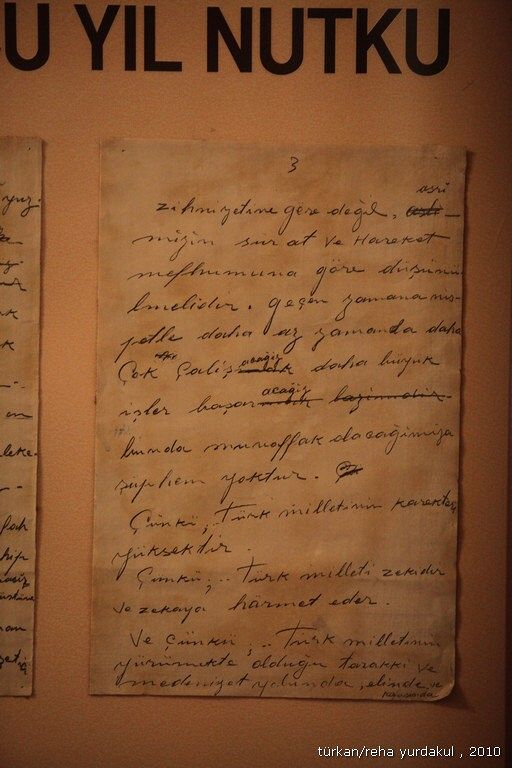 CU YIL NUTKU
3
asri
zihniyetine göre değil, asrı
mızın sür at ve Hareket
mefhumuna göre düşünü
lmelidir. Geçen zamana nis-
petle daha az zamanda daha
Çok Çalışacağız daha büyük
işler başaracağız
bunda muvaffak olacağımıza
şüphem yoktur.
Çünkü, Türk milletinin karekteri
yüksektir.
Çünkü, .. Türk milleti zekidir
ve zekaya hürmet eder.
Ve Çünkü, .. Türk milletinin
yürümekte olduğu tarakki ve
medeniyet yolunda, elinde ve
kafasında
türkan/reha yurdakul , 2010